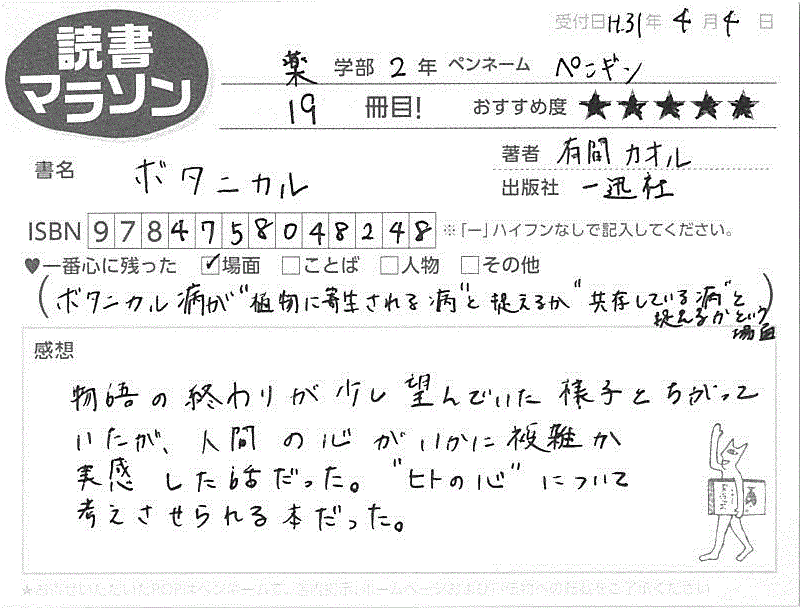 受付日 H.31年 4月 4日
読書
マラソン
薬 学部 2 年 ペンネーム ペンギン
19 冊目! おすすめ度 ★★★★★
書名 ボタニカル
著者 有間カオル
出版社 一迅社
ISBN 9784758048248 ※「ー」ハイフンなしで記入してください。
♥一番心に残った ☑場面 □ことば □人物 □その他
(ボタニカル病が"植物に寄生される病"と捉えるか"共存している病"と
捉えるかという
場面)
感想
物語の終わりが少し望んでいた様子とちがって
いたが、人間の心がいかに複雑か
実感した話だった。"ヒトの心"について
考えさせられる本だった。